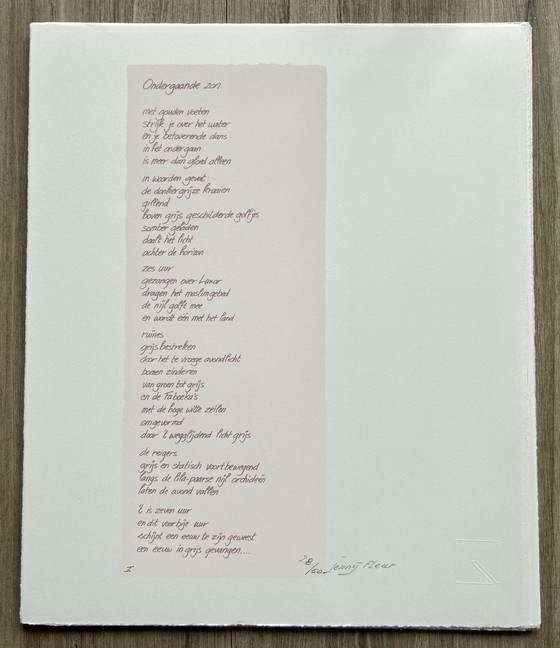 Ondergaande zon
met gouden voeten
strijk je over het water
en je betoverende dans
in het ondergaan
is meer dan gloed alleen
in woorden gevat:
de donkergrijze kraaien
gillend
boven grijs geschilderde golfjes
somber geladen
daalt het licht
achter de horizon
zes uur
gezangen over Luxor
dragen het moslimgebed
de nijl golft mee
en wordt één met het land
ruïnes
grijs bestreken
door het te vroege avondlicht
bomen zinderen
van groen tot grijs
en de Taboeka's
met de hoge witte zeilen
omgevormd
door 't wegglijdend licht grijs
de reigers
grijs en statisch voortbewegend
langs de lila-paarse nijl orchideën
laten de avond vallen
't is zeven uur
en dit voorbije uur
schijnt een eeuw te zijn geweest
een eeuw in grijs gevangen....
I 28/50 Jenny Fleur